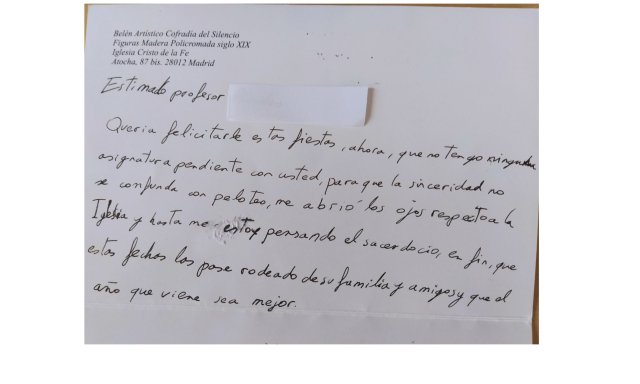 Belén Artístico Cofradía del Silencio
Figuras Madera Policromada siglo XIX
Iglesia Cristo de la Fe
Atocha, 87 bis. 28012 Madrid
Estimado profesor
Queria felicitarle estas fiestas, ahora, que no tengo ninguna
asignatura pendiente con usted, para que la sinceridad no
se confunda con peloteo, me abrió los ojos respecto a la
Iglesia y hasta me estoy pensando el sacerdocio, en fin, que
estas fechas las pase rodeado de su familia y amigos y que el
año que viene sea mejor.